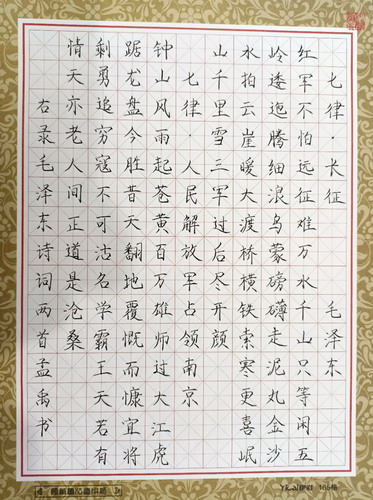 七律·长征 毛泽东
红军不怕远征难万水千山只等闲五
岭逶迤腾细浪乌蒙磅礴走泥丸金沙
水拍云崖暖大渡桥横铁索寒更喜岷
山千里雪三军过后尽开颜
七律·人民解放军占领南京
钟山风雨起苍黄百万雄师过大江虎
踞龙盘今胜昔天翻地覆慨而慷宜将
剩勇追穷寇不可沽名学霸王天若有
情天亦老人间正道是沧桑
右录毛泽东诗词两首孟禹书